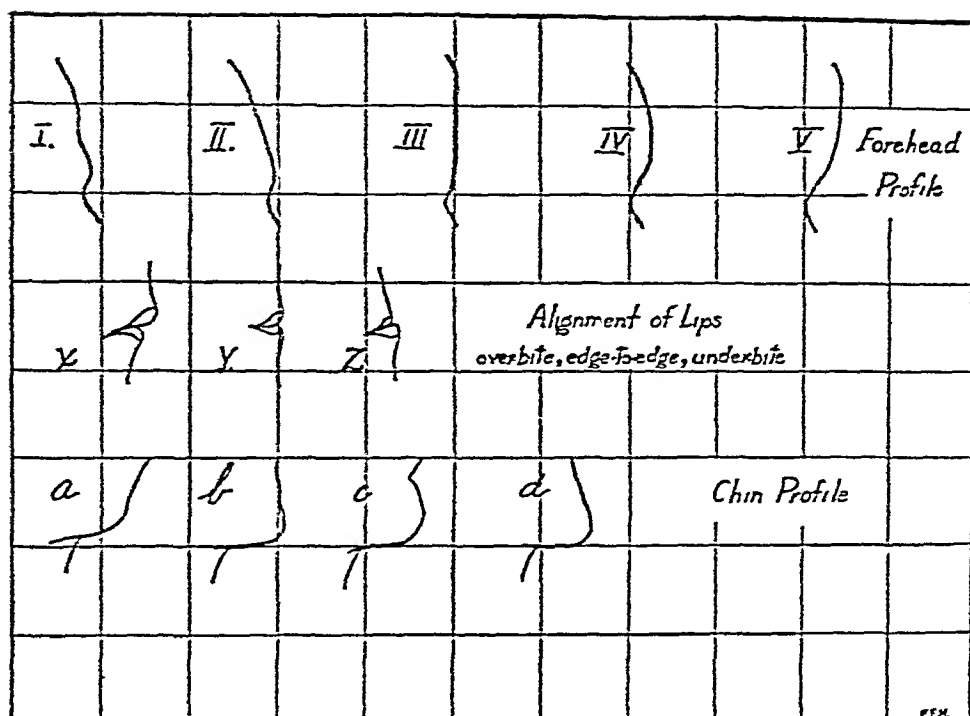 I. II. III IV V Forehead
Profile
Alignment of Lips
x y. z overbite, edge-to-edge, underbite
a b c d Chin Profile